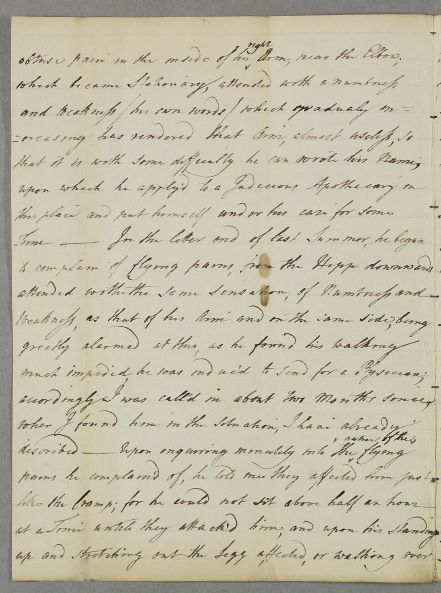 obtuse pain in the inside of his right Arm, near the Elbow,
which became Stationary, attended with a numbness
and weakness / his own words / which gradualy in=
=creasing has rendered that Arm, almost useless, so
that it is with some difficulty he can wrote his Name,
upon which he apply'd to a Judicious Apothecary in
this place and put himself under his care for some
Time — In the latter end of last Summer, he began
to complain of flying pains, from the Hipp downwards
attended with the same Sensation, of Numbness and
Weakness, as that of his Arm and on the same side; being
greatly alarmed at this, as he found his walking
much impeded, he was induc'd to send for a Physecian;
accordingly I was call'd in about two Months since,
when I found him in the Situation, I have already
discribed — Upon enquiring minutely into the nature of these flying
pains he complained of, he told me they affected him just
like the Cramp; for he could not sit above half an hour
at a Time untile they attack'd him, and upon his standing
up and stretching out the Legg affected, or walking over